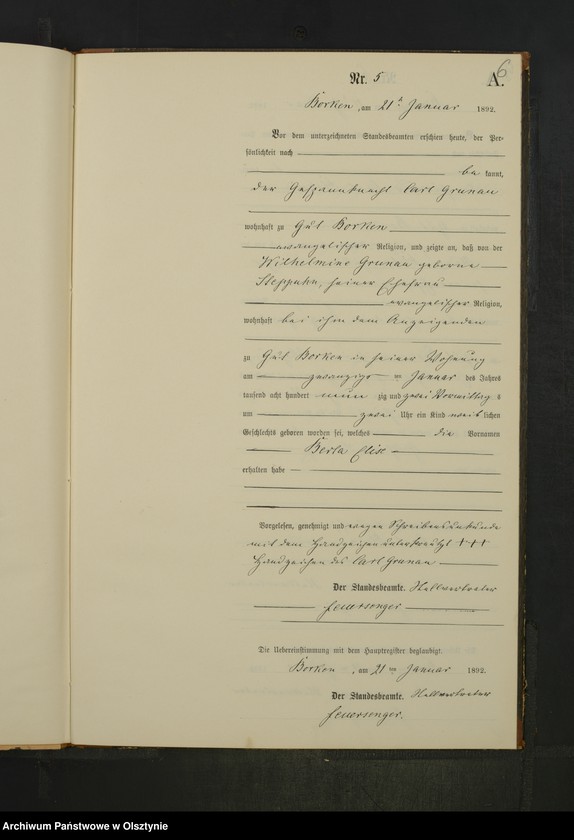 6
Nr. 5 A.
Borken, am 21t Januar 1892.
Vor dem unterzeichneten Standesbeamten erschien heute, der Per-
sönlichkeit nach
be kannt,
der Gespannknecht Carl Grunau
wohnhaft zu Gut Borken
evangelischer Religion, und zeigte an, daß von der
Wilhelmine Grunau geborne
Steppuhn, seiner Ehefrau
evangelischer Religion,
wohnhaft bei ihm dem Anzeigenden
zu Gut Borken in seiner Wohnung
am zwanzigs ten Januar des Jahres
tausend acht hundert neun zig und zwei Vormittag s
um zwei Uhr ein Kind weib lichen
Geschlechts geboren worden sei, welches die Vornamen
Berta Elise
erhalten habe
Vorgelesen, genehmigt und wegen Schreibensunkunde
mit dem Handzeichen unterkreuzt +++
Handzeichen des Carl Grunau
Der Standesbeamte. Stellvertreter
Feuersenger
Die Uebereinstimmung mit dem Hauptregister beglaubigt
Borken, am 21 ten Januar 1892.
Der Standesbeamte. Stellvertreter
Feuersenger.
Archiwum Państwowe w Olsztynie